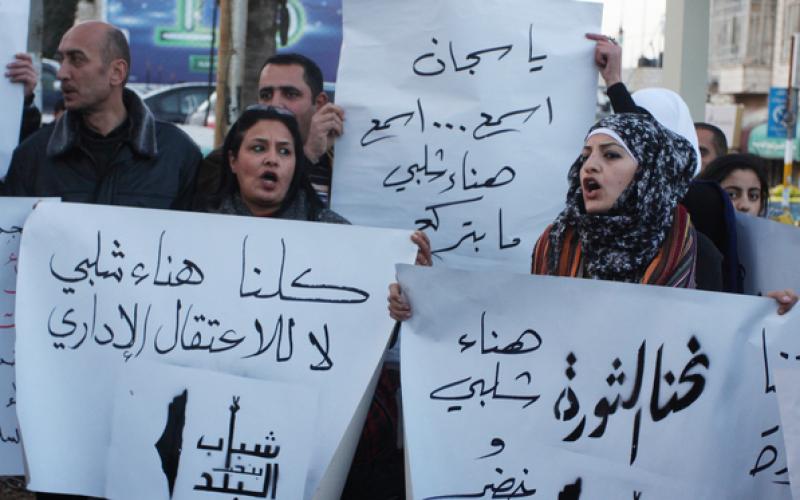 يا سجان
اسمع... اسمع
هناء شلبي
ما بتركع
كلنا هناء شلبي
لا للاعتقال الإداري
شباب
بنحب
البلد
نحنا الثورة
هناء
شلبي
و
خضر